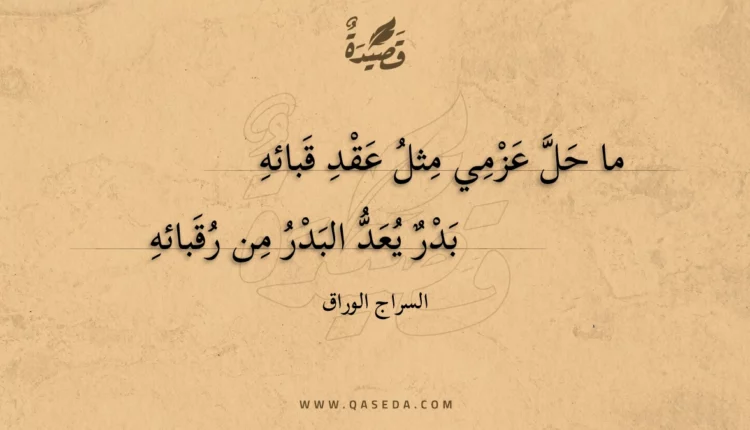 قَصِيْدَةٌ
ما حَلَّ عَزْمِي مِثلُ عَقْدِ قَبائهِ
بَدْرٌ يُعَدُّ البَدْرُ مِن رُقَبائهِ
السراج الوراق
WWW.QASEDA.COM